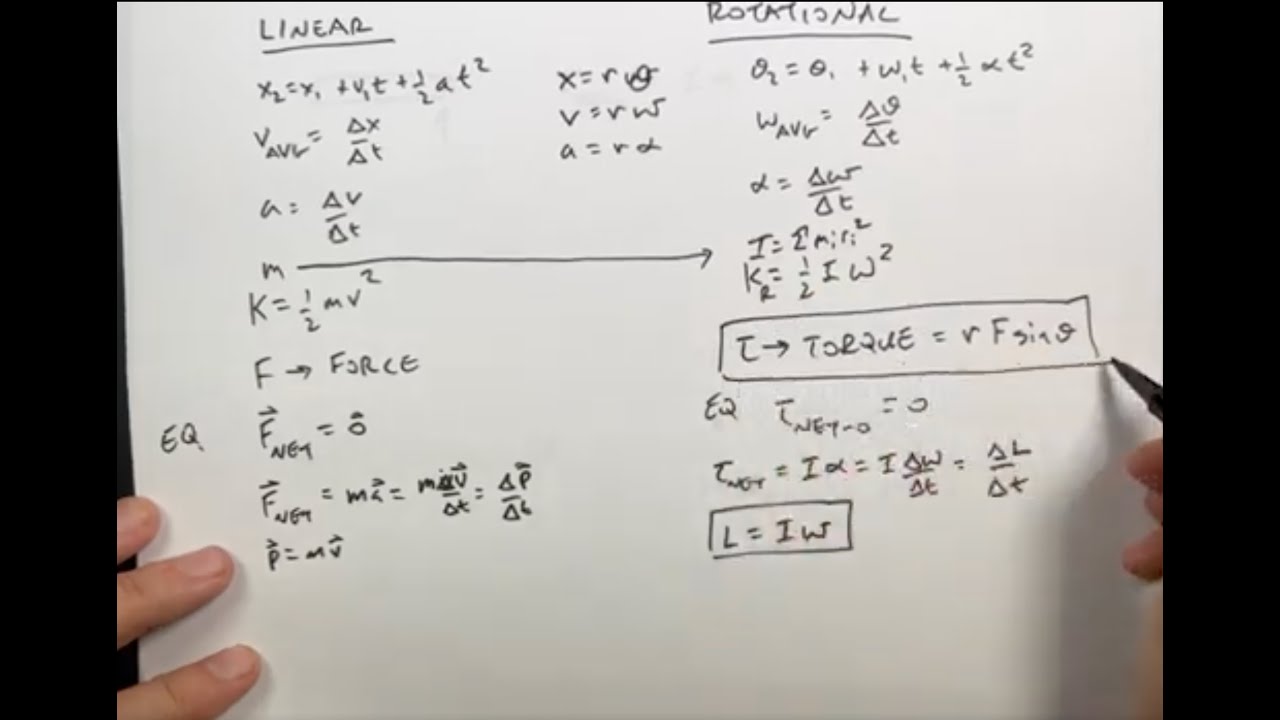 LINEAR
x₂ = x₁ + v₁t + ½at²
V_AVG = Δx/Δt
a = Δv/Δt
m →
K = ½mv²
F → FORCE
EQ F⃗_NET = 0⃗
F⃗_NET = ma⃗ = mΔv⃗/Δt = Δp⃗/Δt
p⃗ = mv⃗
x = rθ
v = rω
a = rα
ROTATIONAL
θ₂ = θ₁ + ω₁t + ½αt²
ω_AVG = Δθ/Δt
α = Δω/Δt
I = Σmᵢrᵢ²
K_R = ½Iω²
τ → TORQUE = rFsinθ
EQ τ_NET = 0
τ_NET = Iα = IΔω/Δt = ΔL/Δt
L = Iω